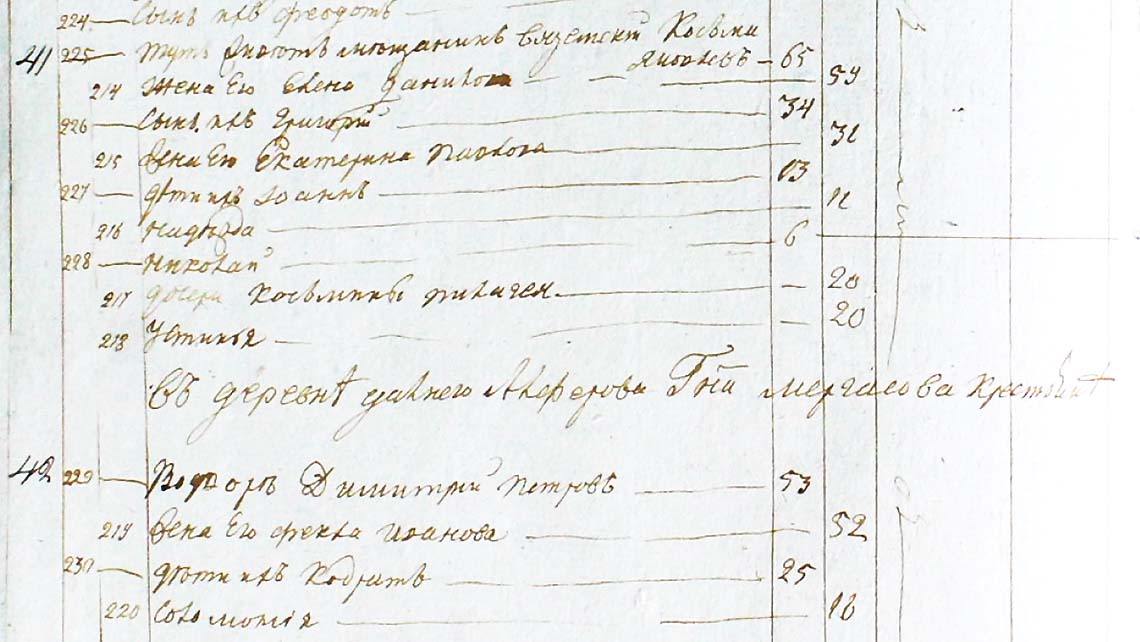 224 — Сынъ ихъ Феодотъ —
41 225 — Тутъ живетъ мещанинъ вяземскій Косьма
Яковлевъ — 65
214 Жена Его Елена Данилова — 59
226 — Сынъ ихъ Григорій — 34
215 Жена Его Екатерина Павлова — 31
227 — Дети ихъ Іоаннъ — 13
216 Надежда — 11
228 — Николай — 6
217 Дочери Косьмины Пелагея — 20
218 Устинья — 20
Въ деревнѣ Алферова Гжи Мергасова крестьянѣ
42 229 — Ѳедоръ Димитрій Петровъ — 53
219 Жена Его Фекла Иванова — 52
230 — Дети ихъ Кодратъ — 25
220 Соломонія — 16